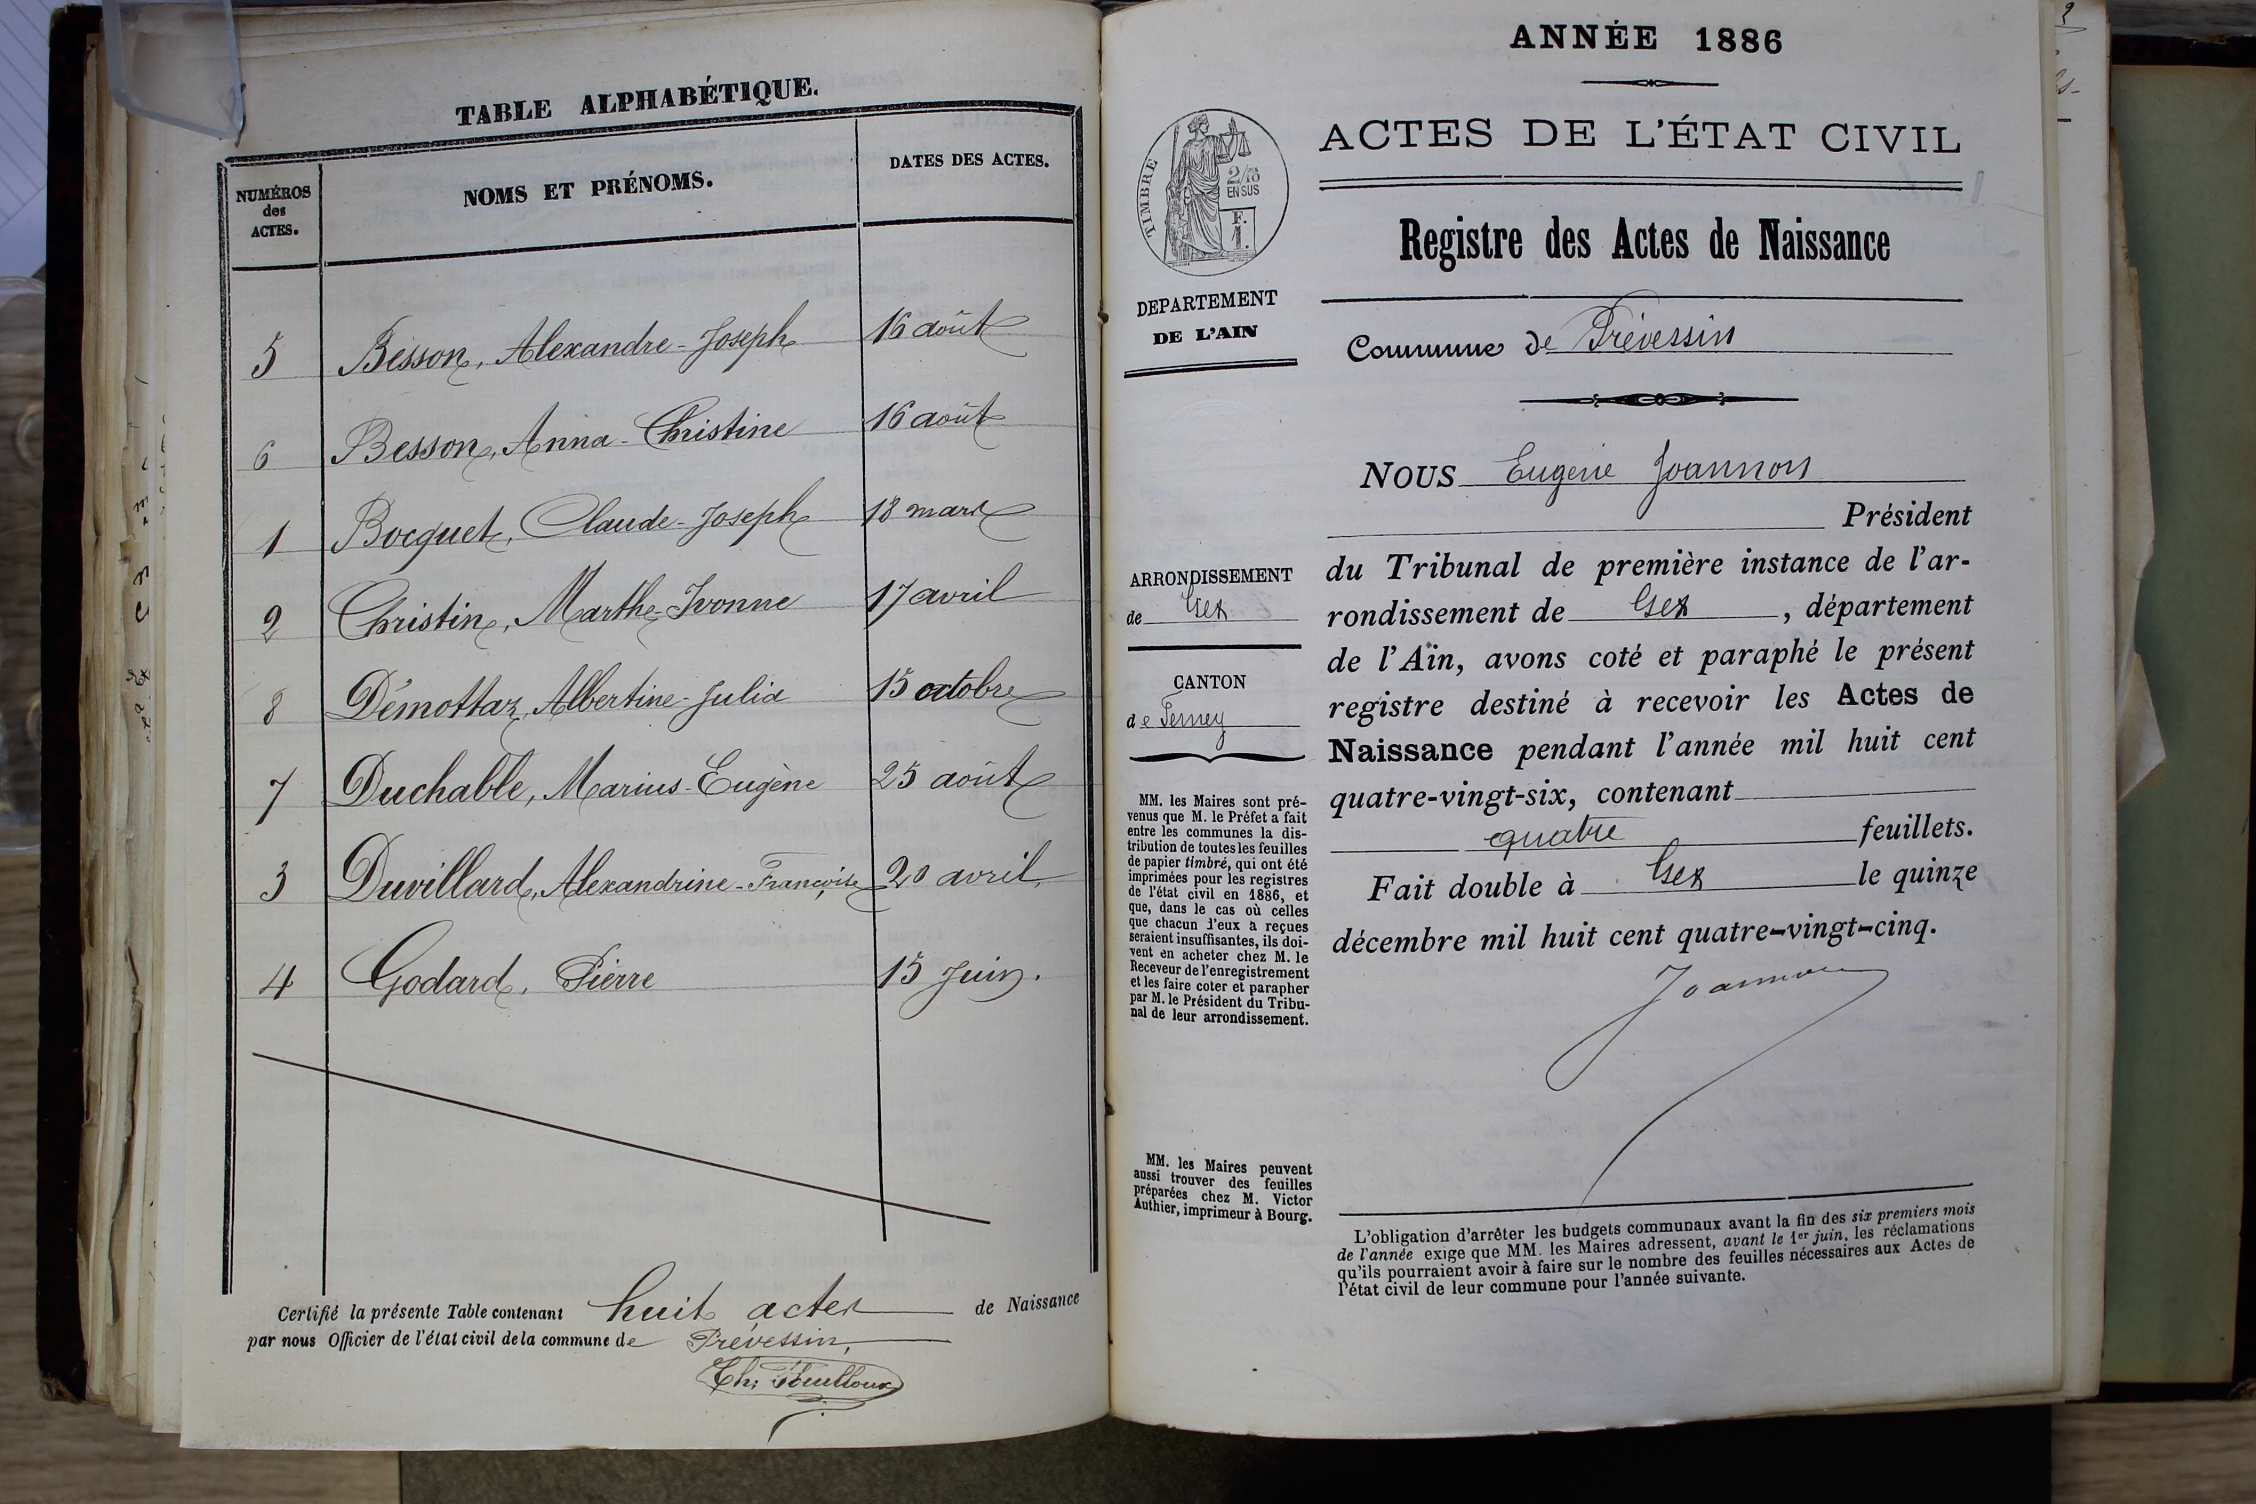 TABLE ALPHABÉTIQUE.
NUMÉROS
des
ACTES.
NOMS ET PRÉNOMS.
DATES DES ACTES.
5 Besson, Alexandre-Joseph 16 août
6 Besson, Anna-Christine 16 août
1 Bocquet, Claude-Joseph 18 mars
2 Christin, Marthe-Ivonne 17 avril
8 Démottaz, Albertine-Julia 15 octobre
7 Duchable, Marius-Eugène 25 août
3 Duvillard, Alexandrine-Françoise 20 avril
4 Godard, Pierre 15 Juin.
Certifié la présente Table contenant huit actes de Naissance
par nous Officier de l'état civil de la commune de Prévessin,
ANNÉE 1886
ACTES DE L'ÉTAT CIVIL
TIMBRE
2/10
EN SUS
F.
1.
DEPARTEMENT
DE L'AIN
Registre des Actes de Naissance
Commune de Prévessin
NOUS Eugène Joannon
Président
du Tribunal de première instance de l'ar-
rondissement de Gex, département
de l'Ain, avons coté et paraphé le présent
registre destiné à recevoir les Actes de
Naissance pendant l'année mil huit cent
quatre-vingt-six, contenant
quatre feuillets.
Fait double à Gex le quinze
décembre mil huit cent quatre-vingt-cinq.
Joannon
ARRONDISSEMENT
de Gex
CANTON
de Ferney
MM. les Maires sont pré-
venus que M. le Préfet a fait
entre les communes la dis-
tribution de toutes les feuilles
de papier timbré, qui ont été
imprimées pour les registres
de l'état civil en 1886, et
que, dans le cas où celles
que chacun d'eux a reçues
seraient insuffisantes, ils doi-
vent en acheter chez M. le
Receveur de l'enregistrement
et les faire coter et parapher
par M. le Président du Tribu-
nal de leur arrondissement.
MM. les Maires peuvent
aussi trouver des feuilles
préparées chez M. Victor
Authier, imprimeur à Bourg.
L'obligation d'arrêter les budgets communaux avant la fin des six premiers mois
de l'année exige que MM. les Maires adressent, avant le 1er juin, les réclamations
qu'ils pourraient avoir à faire sur le nombre des feuilles nécessaires aux Actes de
l'état civil de leur commune pour l'année suivante.